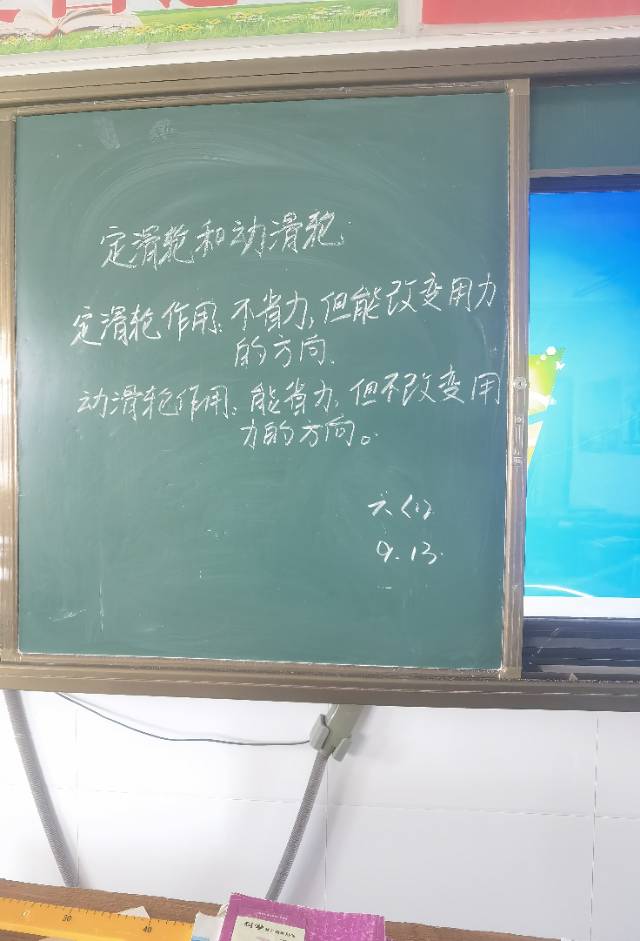 定滑轮和动滑轮
定滑轮作用：不省力，但能改变用力
的方向.
动滑轮作用：能省力，但不改变用
力的方向。
六(1)
9.13
30
40
科学